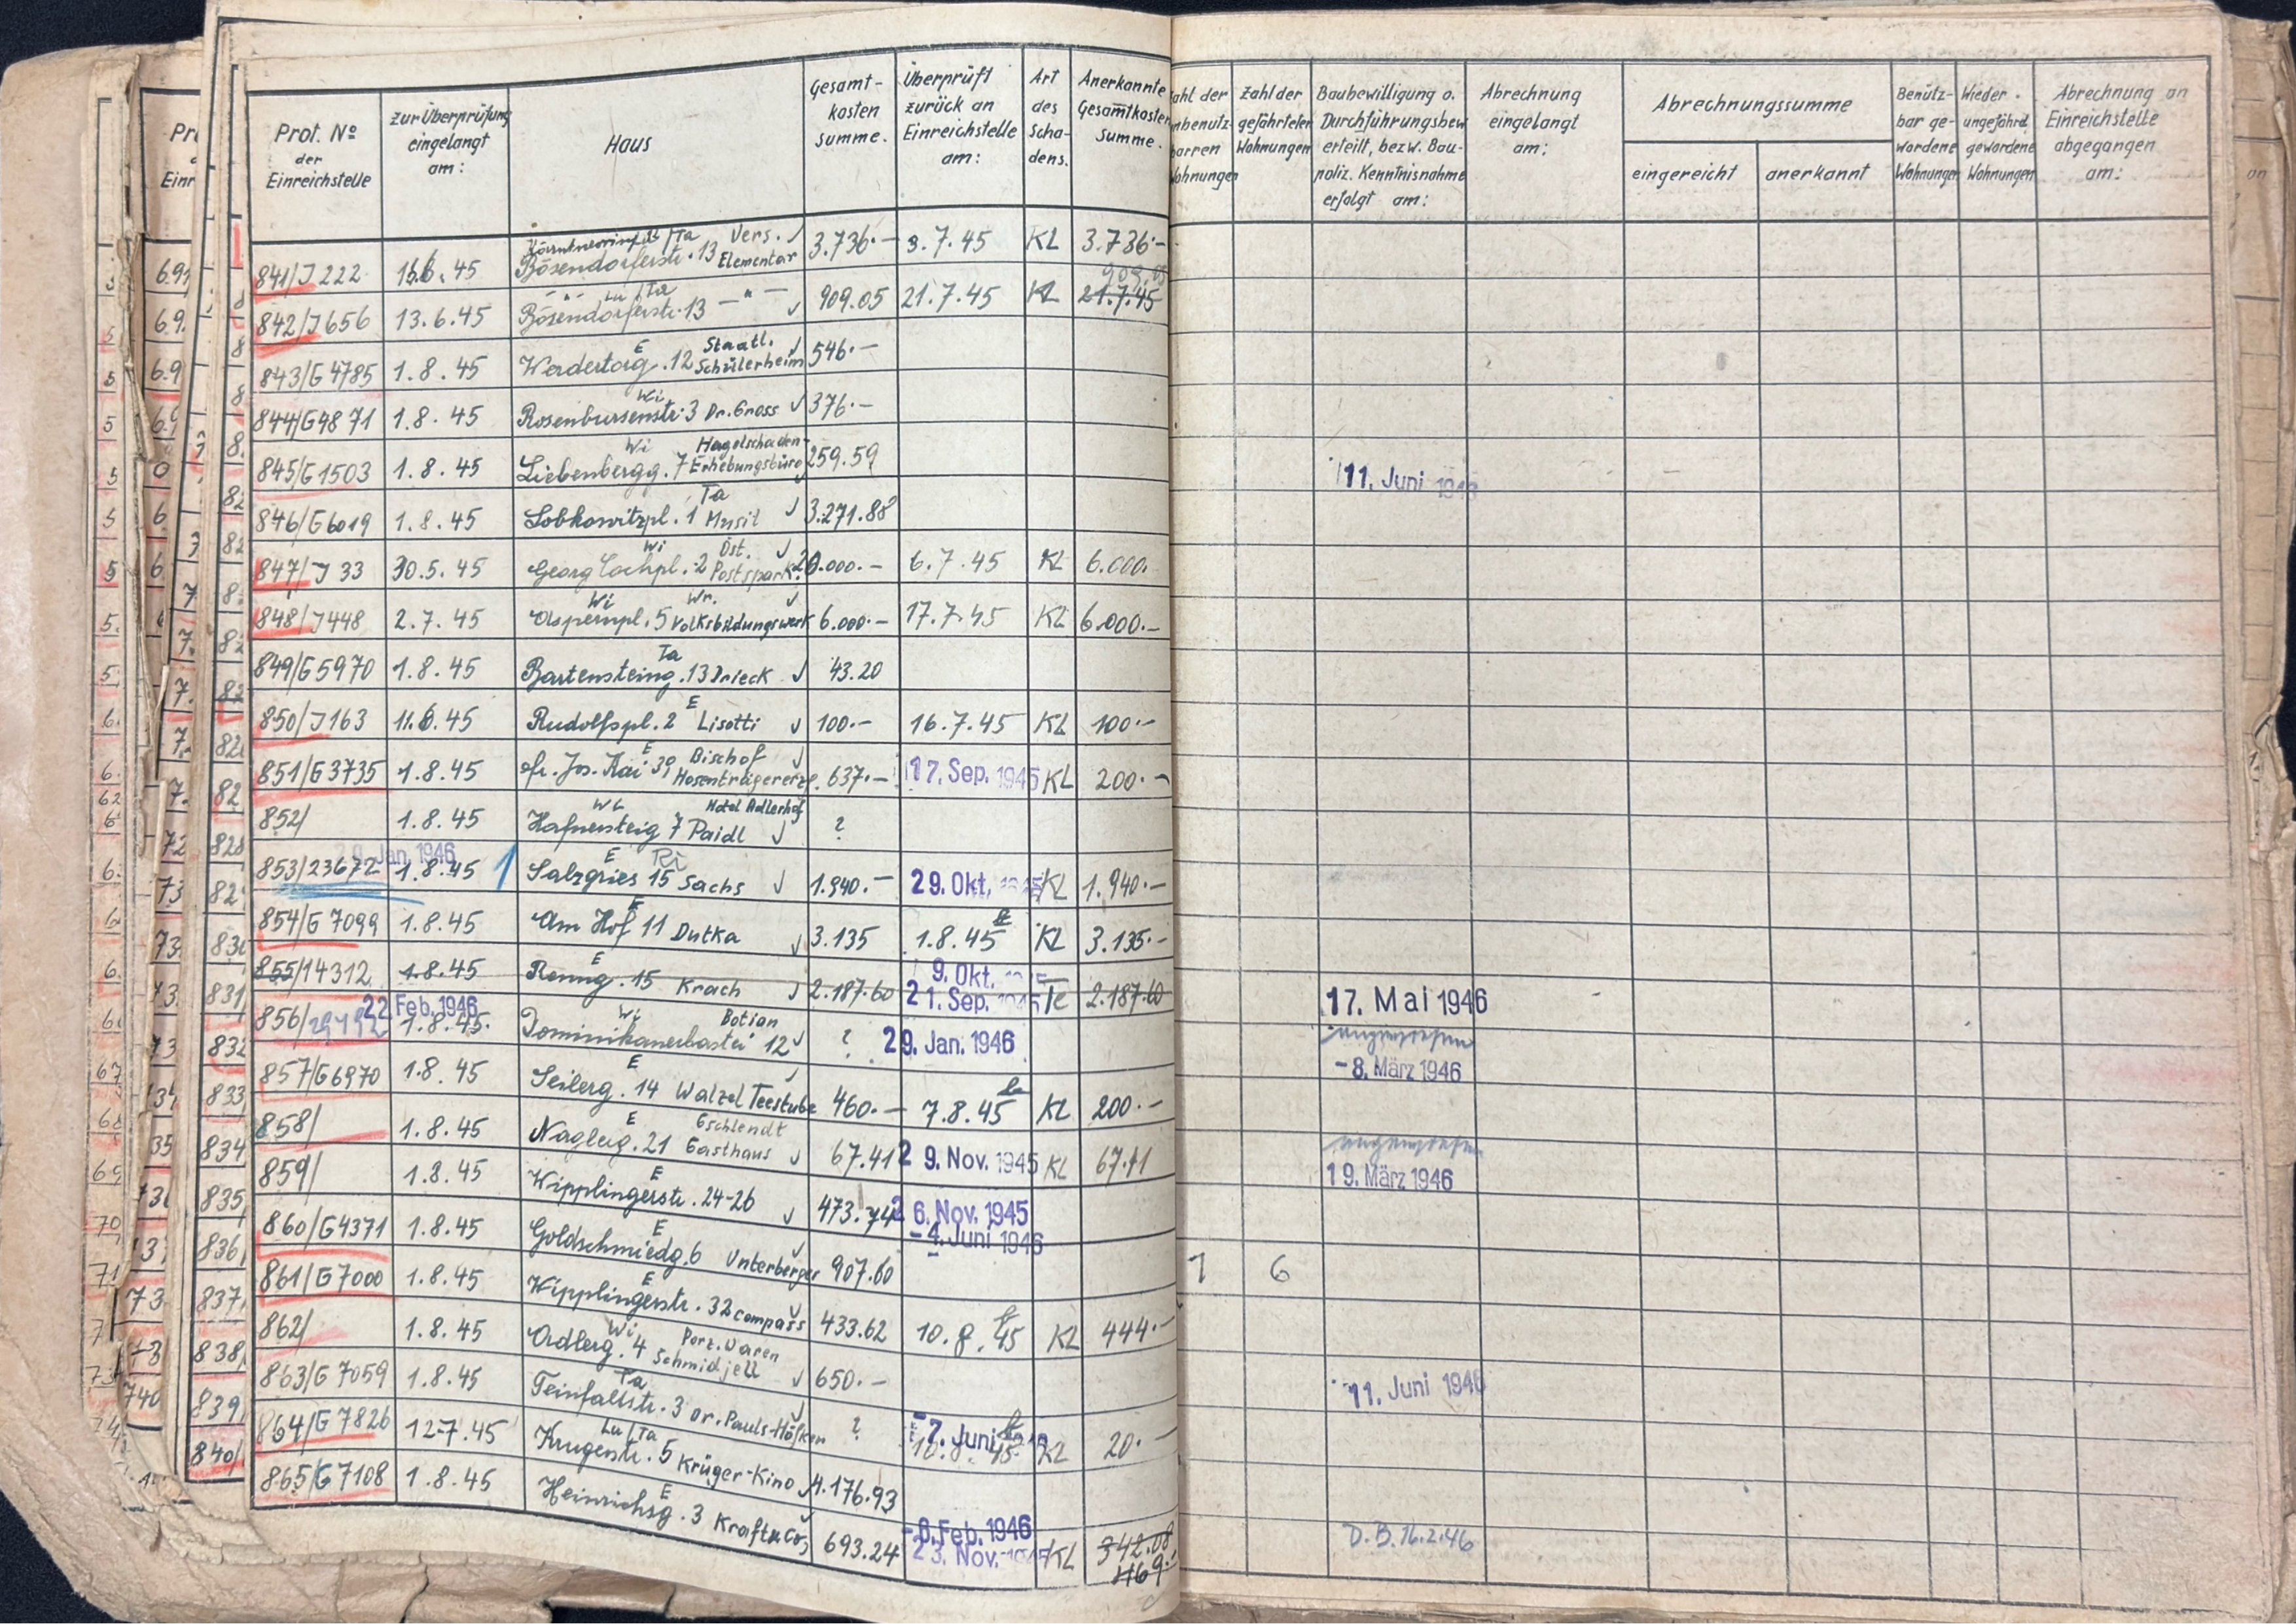 Prot. No der Einreichstelle
zur Überprüfung eingelangt am:
Haus
Gesamt-kosten summe.
Überprüft zurück an Einreichstelle am:
Art des Scha-dens.
Anerkannte Gesamtkosten summe.
Zahl der gefährteten Wohnungen
Baubewilligung o. Durchführungsbew. erteilt, bezw. Bau-poliz. Kenntnisnahme erfolgt am:
Abrechnung eingelangt am:
Abrechnungssumme
eingereicht anerkannt
Benütz-bar ge-wordene Wohnungen
Wieder ungefährd. gewordene Wohnungen
Abrechnung an Einreichstelle abgegangen am:
841/J 222 .45 Bösendorferstr. 13 Ta Vers. Elementar 3.736.— 3.7.45 KL 3.736.—
842/J 656 13.6.45 Bösendorferstr. 13 Lu/Ta —"— 909.05 21.7.45 KL 909.05 21.7.45
843/G 4785 1.8.45 Werdertorg. 12 E Staatl. Schülerheim 546.—
844/G 4871 1.8.45 Rosenbursenstr. 3 Wi Dr. Gross 376.—
845/G 1503 1.8.45 Liebenbergg. 7 Wi Hagelschaden-Erhebungsbüro 259.59 11. Juni
846/G 6019 1.8.45 Lobkowitzpl. 1 Ta Musil 3.271.88
847/J 33 30.5.45 Georg Cochpl. 2 Wi Öst. Postspark. 6.7.45 KL 6.000.
848/J 448 2.7.45 Aspernpl. 5 Wi Wr. Volksbildungswerk 6.000.— 17.7.45 KL 6.000.—
849/G 5970 1.8.45 Bartensteing. 13 Ta Drieck 43.20
850/J 163 .45 Rudolfspl. 2 E Lisotti 100.— 16.7.45 KL 100.—
851/G 3735 1.8.45 Fr. Jos. Kai 39 E Bischof Hosenträgererzg. 637.— 17. Sep. 1945 KL 200.—
852/ 1.8.45 Hafnersteig 7 Wi Hotel Adlerhof Paidl ?
853/23672 Jan. 1946 1.8.45 Salzgries 15 E Ri Sachs 1.940.— 29. Okt. KL 1.940.—
854/G 7099 1.8.45 Am Hof 11 E Dutka 3.135 1.8.45 KL 3.135.—
855/14312 1.8.45 Renng. 15 E Krach 2.187.60 9. Okt. 21. Sep. 1945 Te 2.187.60 17. Mai 1946
856/ 22 Feb. 1946 1.8.45. Dominikanerbastei 12 Wi Botian ? 29. Jan. 1946 angewiesen -8. März 1946
857/G 6970 1.8.45 Seilerg. 14 E Walzel Teestube 460.— 7.8.45 KL 200.—
858/ 1.8.45 Naglerg. 21 E Gschlendt Gasthaus 67.41 29. Nov. 1945 KL 67.41 angewiesen 19. März 1946
859/ 1.8.45 Wipplingerstr. 24-26 E 473.74 26. Nov. 1945 -4. Juni 1946
860/G 4371 1.8.45 Goldschmiedg. 6 E Unterberger 907.60 1 6
861/G 7000 1.8.45 Wipplingerstr. 32 E Compass 433.62 10.8.45 KL 444.—
862/ 1.8.45 Adlerg. 4 Wi Porz. Waren Schmidjell 650.— 11. Juni 1946
863/G 7059 1.8.45 Teinfaltstr. 3 Ta Dr. Pauls-Höfken ? -7. Juni 10.8.45 KL 20.—
864/G 7826 12.7.45 Krugerstr. 5 Lu/Ta Krüger-Kino 4.176.93
865/G 7108 1.8.45 Heinrichsg. 3 E Kraft u Co. 693.24 -8. Feb. 1946 23. Nov. KL 342.08 469.- D.B. 16.2.46